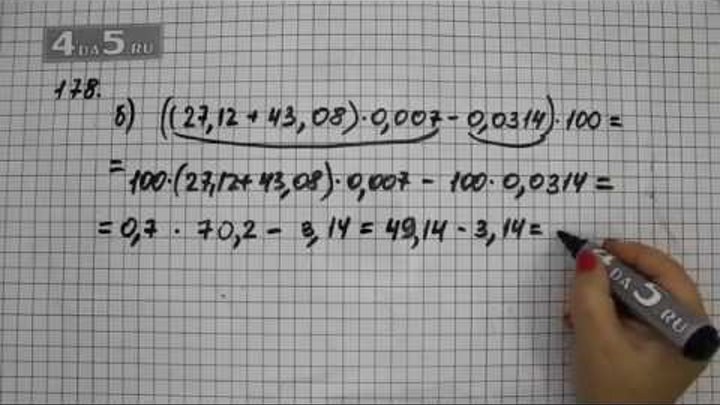 4 DA 5 .RU
178.
б) ((27,12 + 43,08) · 0,007 - 0,0314) · 100 =
= 100 · (27,12 + 43,08) · 0,007 - 100 · 0,0314 =
= 0,7 · 70,2 - 3,14 = 49,14 - 3,14 =
4 DA 5 .RU